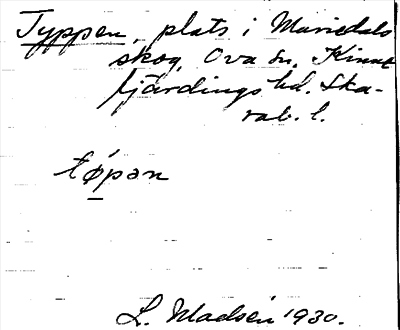 Typpen, plats i Mariedals
skog, Ova sn, Kinne
fjärdings hd. Ska-
rab. l.
tǿpən
L. Madsén 1930.